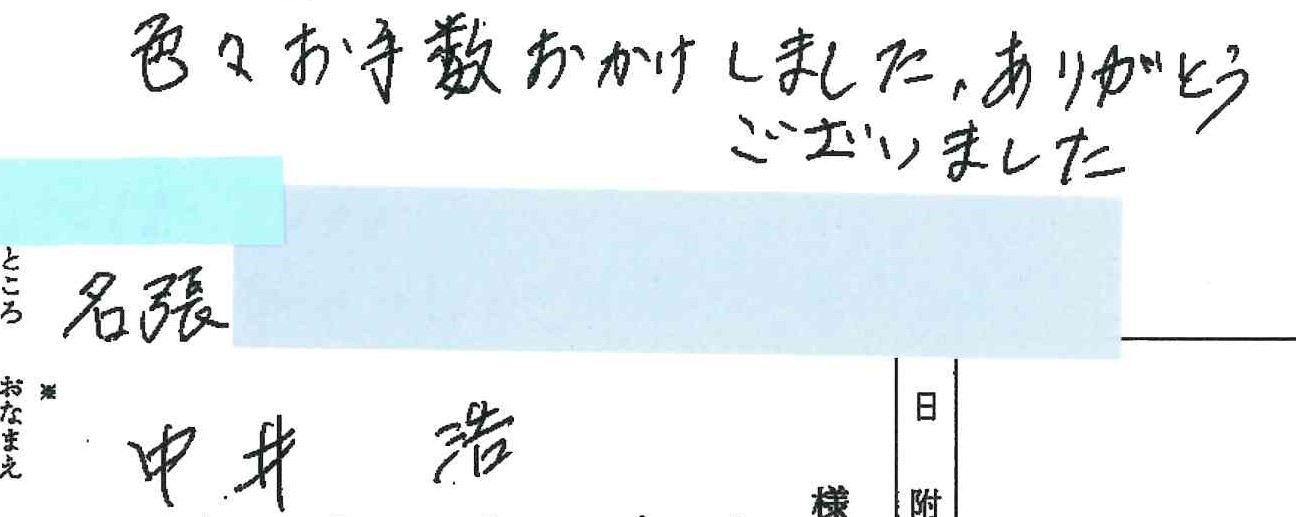 色々お手数おかけしました、ありがとう
ございました
ところ
名張
※
おなまえ
中井 浩
様
日附